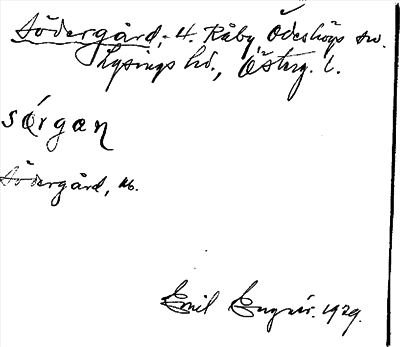 Södergård, - 4. Råby Ödeshögs sn.
Lysings hd., Österg. l.
sǿrgan
Södergård, 
Emil 1929.